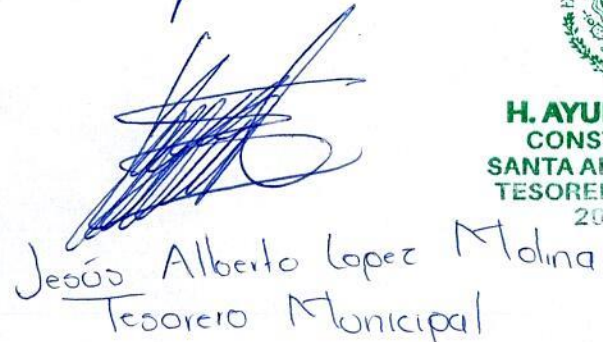 H. AYU
CONS
SANTA A
TESORE
20
Jesús Alberto Lopez Molina
Tesorero Municipal